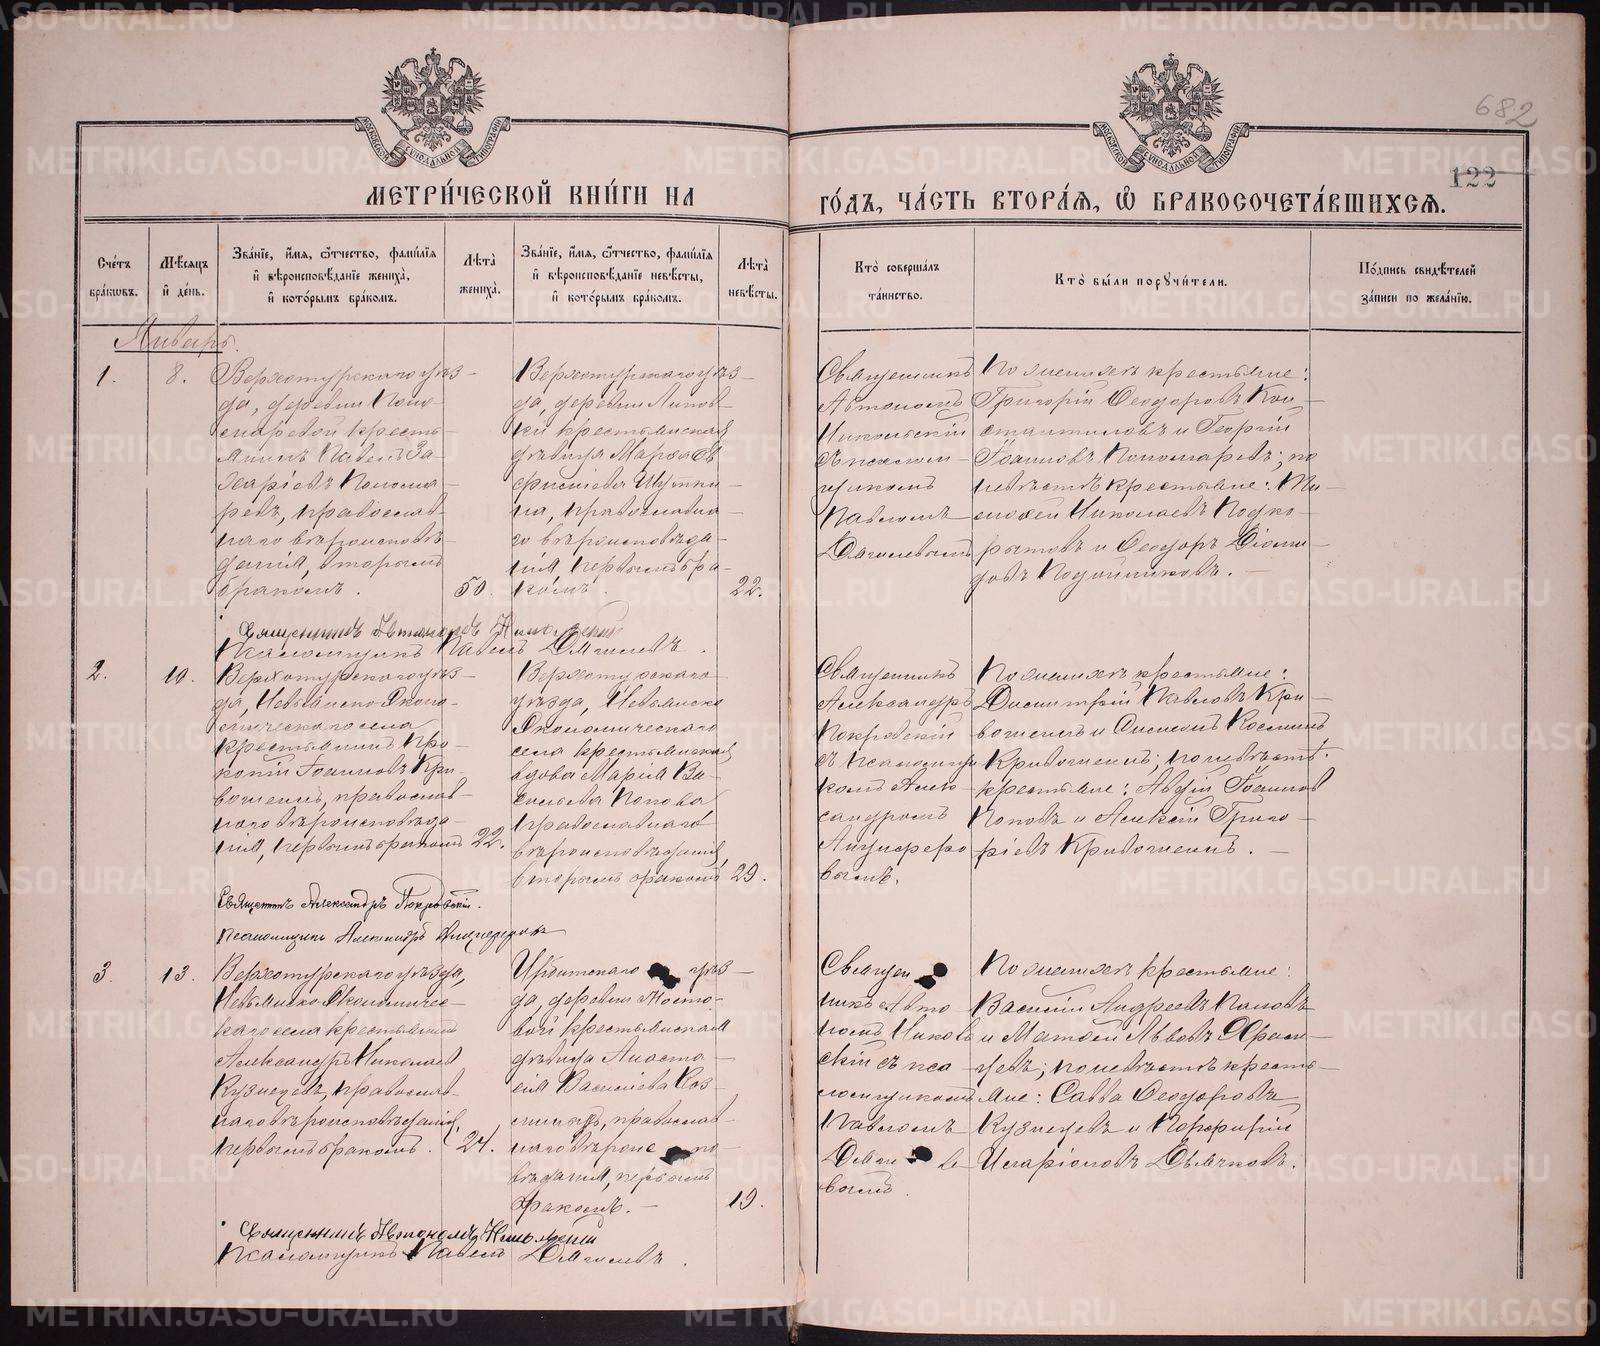 682
122
МЕТРИ́ЧЕСКОЙ КНИ́ГИ НА
ГО́ДЪ, ЧА́СТЬ ВТОРА́Я, Ѽ БРАКОСОЧЕТА́ВШИХСЯ.
Сче́тъ бра́ковъ.
Мѣ́сяцъ и҆ де́нь.
Зва́нїе, и҆́мя, ѻ҆́тчество, фами́лїя и҆ вѣроисповѣ́данїе жениха̀, и҆ кото́рымъ бра́комъ.
Лѣта̀ жениха̀.
Зва́нїе, и҆́мя, ѻ҆́тчество, фами́лїя и҆ вѣроисповѣ́данїе невѣ́сты, и҆ кото́рымъ бра́комъ.
Лѣта̀ невѣ́сты.
Кто̀ соверша́лъ та́инство.
Кто̀ бы́ли порꙋчи́тели.
По́дпись свидѣ́телей за́писи по жела́нїю.
Январь.
1.
8.
Верхотурскаго уѣз-
да, деревни Поно-
маревой кресть-
янинъ Павелъ За-
харіевъ Понома-
ревъ, православ-
наго вѣроисповѣ-
данія, вторымъ
бракомъ.
50.
Верхотурскаго уѣз-
да, деревни Липов-
ки крестьянская
дѣвица Марѳа
Щупки-
на, православна-
го вѣроисповѣда-
нія первымъ бра-
комъ.
22.
Священникъ
Автономъ
Никольскій
съ псалом-
щикомъ
Павломъ
Дягилевымъ
По женихѣ крестьяне:
Григорій Ѳеодоровъ Кон-
стантиновъ и Георгій
Іоанновъ Пономаревъ; по
невѣстѣ крестьяне: Ти-
моѳей Николаевъ Подко-
рытовъ и Ѳеодоръ Діоми-
довъ Подойниковъ.
Священникъ Автономъ Никольскій
Псаломщикъ Павелъ Дягилевъ.
2.
10.
Верхотурскаго уѣз-
да, Невьянско-Эконо-
мическаго села
крестьянинъ Про-
копій Іоанновъ Кри-
воногихъ, православ-
наго вѣроисповѣда-
нія, первымъ бракомъ
22.
Верхотурскаго
уѣзда, Невьянско
Экономическаго
села крестьянская
вдова Марія Ва-
сильева Попова
православнаго
вѣроисповѣданія,
вторымъ бракомъ
29.
Священникъ
Александръ
Покровскій
съ псаломщи
комъ Алек-
сандромъ
Анциферо
вымъ.
По женихѣ крестьяне:
Димитрій Павловъ Кри-
воногихъ и Симеонъ Косминъ
Кривоногихъ; по невѣстѣ
крестьяне: Авдій Іоанновъ
Поповъ и Алексій Григо-
ріевъ Кривоногихъ.
Священникъ Александръ Покровскій.
Псаломщикъ Александръ Анциферовъ
3.
13.
Верхотурскаго уѣзда,
Невьянско Экономичес-
каго села крестьянинъ
Александръ Николаевъ
Кузнецовъ, православ-
наго вѣроисповѣданія,
первымъ бракомъ.
24.
Ирбитскаго уѣз-
да, деревни Мосто-
вой крестьянская
дѣвица Анаста-
сія Василіева
православ-
наго вѣроиспо-
вѣданія, первымъ
бракомъ.
19.
Священ
никъ Авто
номъ Николь
скій съ пса
ломщикомъ
Павломъ
Дягиле
вымъ.
По женихѣ крестьяне:
Василій Андреевъ Поповъ
и Матѳей Львовъ
по невѣстѣ кресть-
яне: Савва Ѳеодоровъ
Кузнецовъ и Порфирій
Иларіоновъ Дьячковъ.
Священникъ Автономъ Никольскій
Псаломщикъ Павелъ Дягилевъ.
METRIKI.GASO-URAL.RU